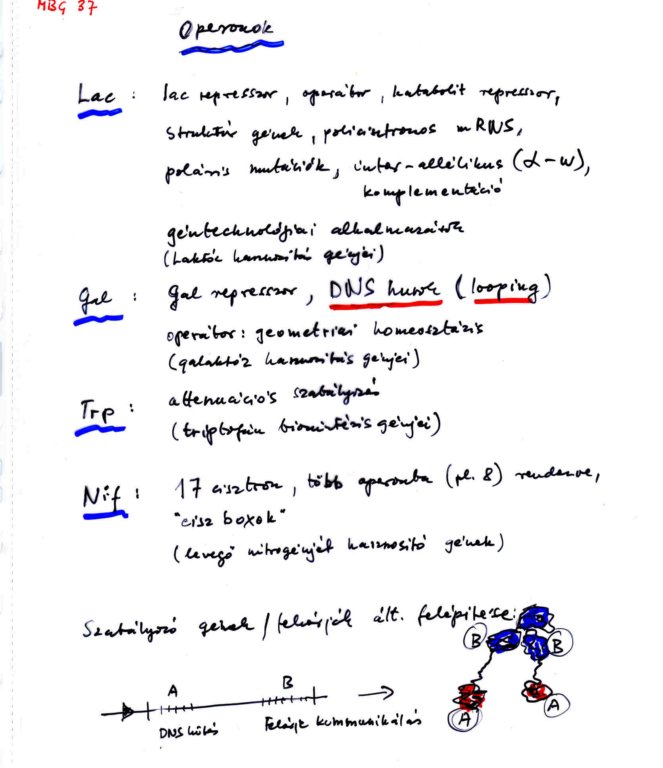 MBG 37
Operonok
Lac : lac represszor, operátor, katabolit represszor,
struktúr gének, policisztronos mRNS,
poláris mutációk, inter-allélikus (α-ω),
komplementáció
géntechnológiai alkalmazások
(laktóz hasznosító génjei)
Gal : Gal represszor, DNS hurok (looping)
operátor: geometriai homeosztázis
(galaktóz hasznosítás génjei)
Trp : attenuációs szabályozás
(triptofán bioszintézis génjei)
Nif : 17 cisztron, több operonba (pl. 8) rendezve,
"cisz boxok"
(levegő nitrogénjét hasznosító gének)
Szabályozó gének / fehérjék ált. felépítése:
B B
A B
DNS kötés Fehérje kommunikálás
A A